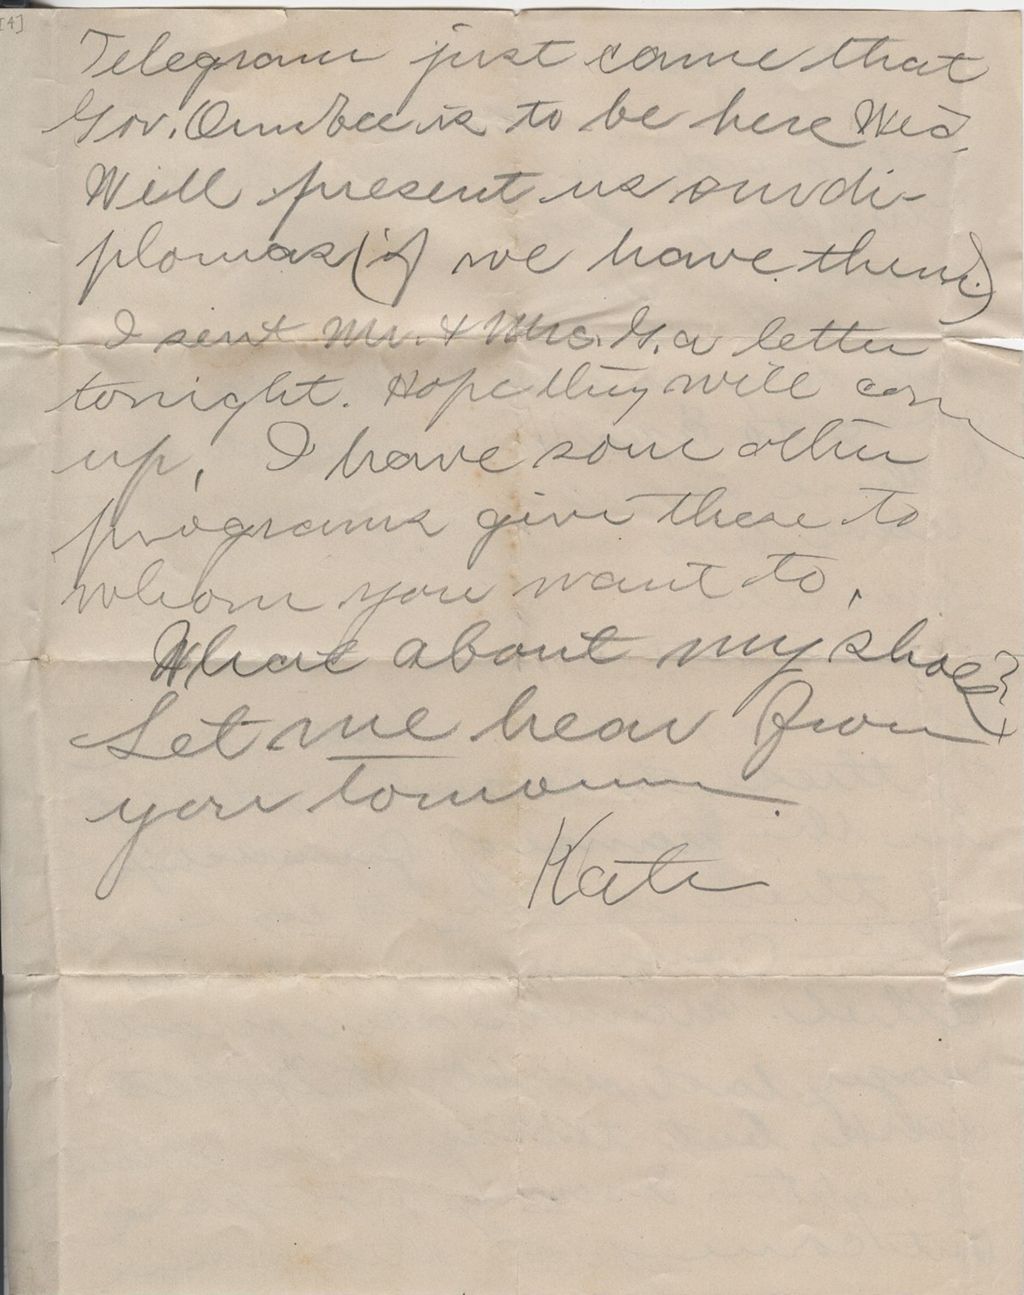 [4]
Telegram just came that
Gov. Ournbee is to be here Wed.
Will present us our di-
plomas (if we have them.)
I sent Mr. & Mrs. G. a letter
tonight. Hope they will com
up, I have some other
programs give these to
whom you want to.
What about my shoes?
Let me hear from
you tomorrow.
Kate